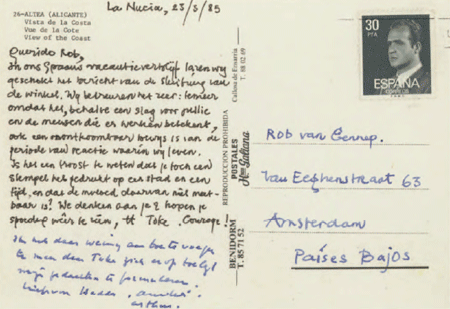 La Nucia, 23/3/85
26-ALTEA (ALICANTE)
Vista de la Costa
Vue de la Cote
View of the Coast
Querido Rob,
In ons Spaans vacantieverblijf lazen wij
geschokt het bericht van de sluiting van
de winkel. Wij betreuren het zeer: temeer
omdat het, behalve een slag voor jullie
en de mensen die er werken betekent,
ook een bewijs is van de
periode van reactie waarin wij leven.
Is het een troost te weten dat je toch een
stempel hebt gedrukt op een stad en een
tijd, en dat de invloed daarvan niet meet-
baar is? We denken aan je & hopen je
spoedig weer te zien, Toke. Courage!
Ik heb daar weinig aan toe te voegen
mijn gedachten te formuleren.
liefs van
REPRODUCCION PROHIBIDA
Calleno de Ensarria
T. 88 02 69
POSTALES
Hnos Galiana
BENIDORM
T. 85 71 52
30
PTA
ESPAÑA
CORREOS
Rob van Gennep.
Van Eeghenstraat 63
Amsterdam
Países Bajos